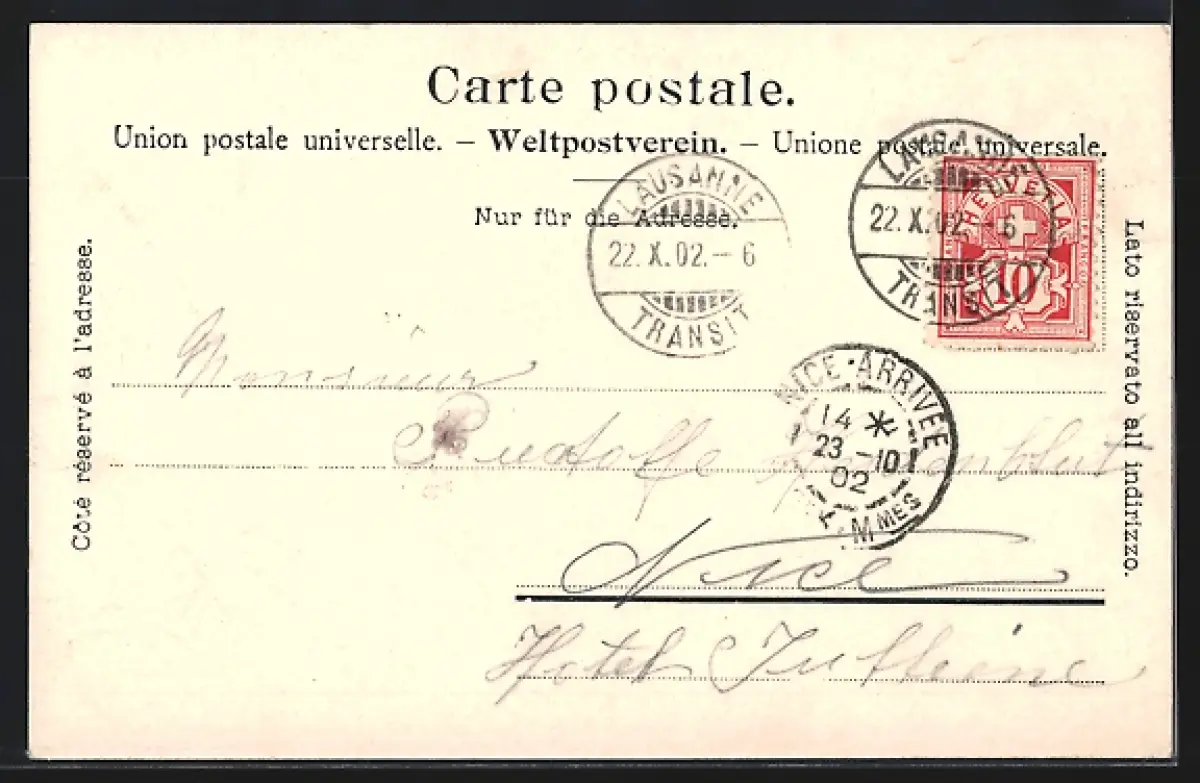 Carte postale.
Union postale universelle. – Weltpostverein. – Unione postale universale.
Nur für die Adresse.
Côté réservé à l'adresse.
Lato riservato all indirizzo.
LAUSANNE
22. X. 02. – 6
TRANSIT
LAUSANNE
22. X. 02. – 6
TRANSIT
HELVETIA
FRANCO
10
NICE · ARRIVÉE
14 *
23 - 10
02
MMES
Monsieur
Nice
Hotel